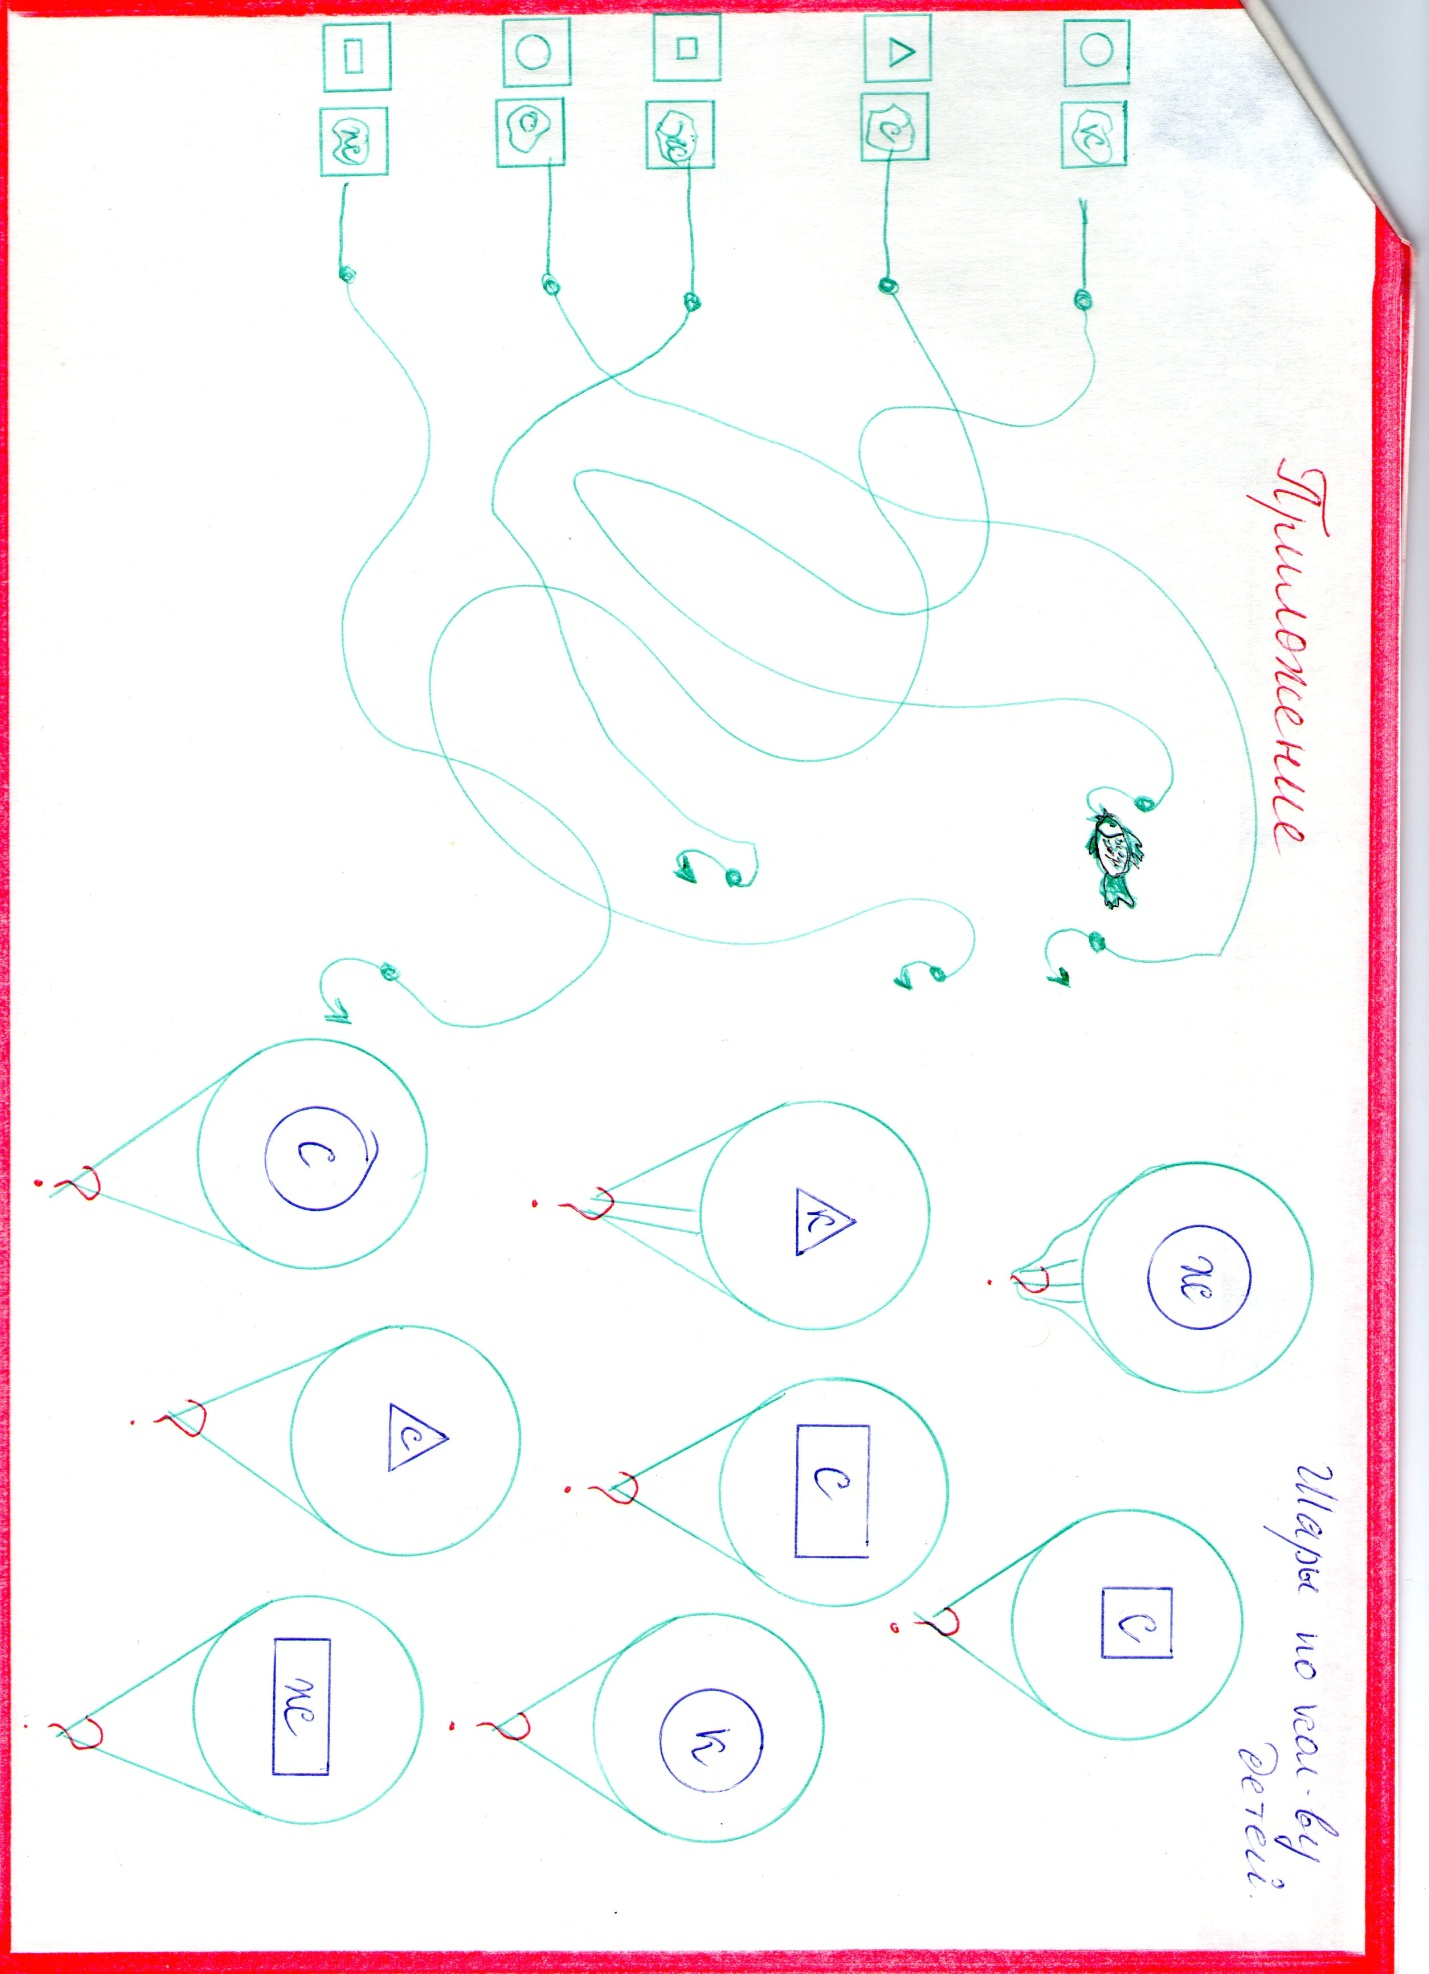 Приложение
Шары по кол-ву
детей.
к
с
ж
с
ж
ж
с
к
с
к
с
с
ж